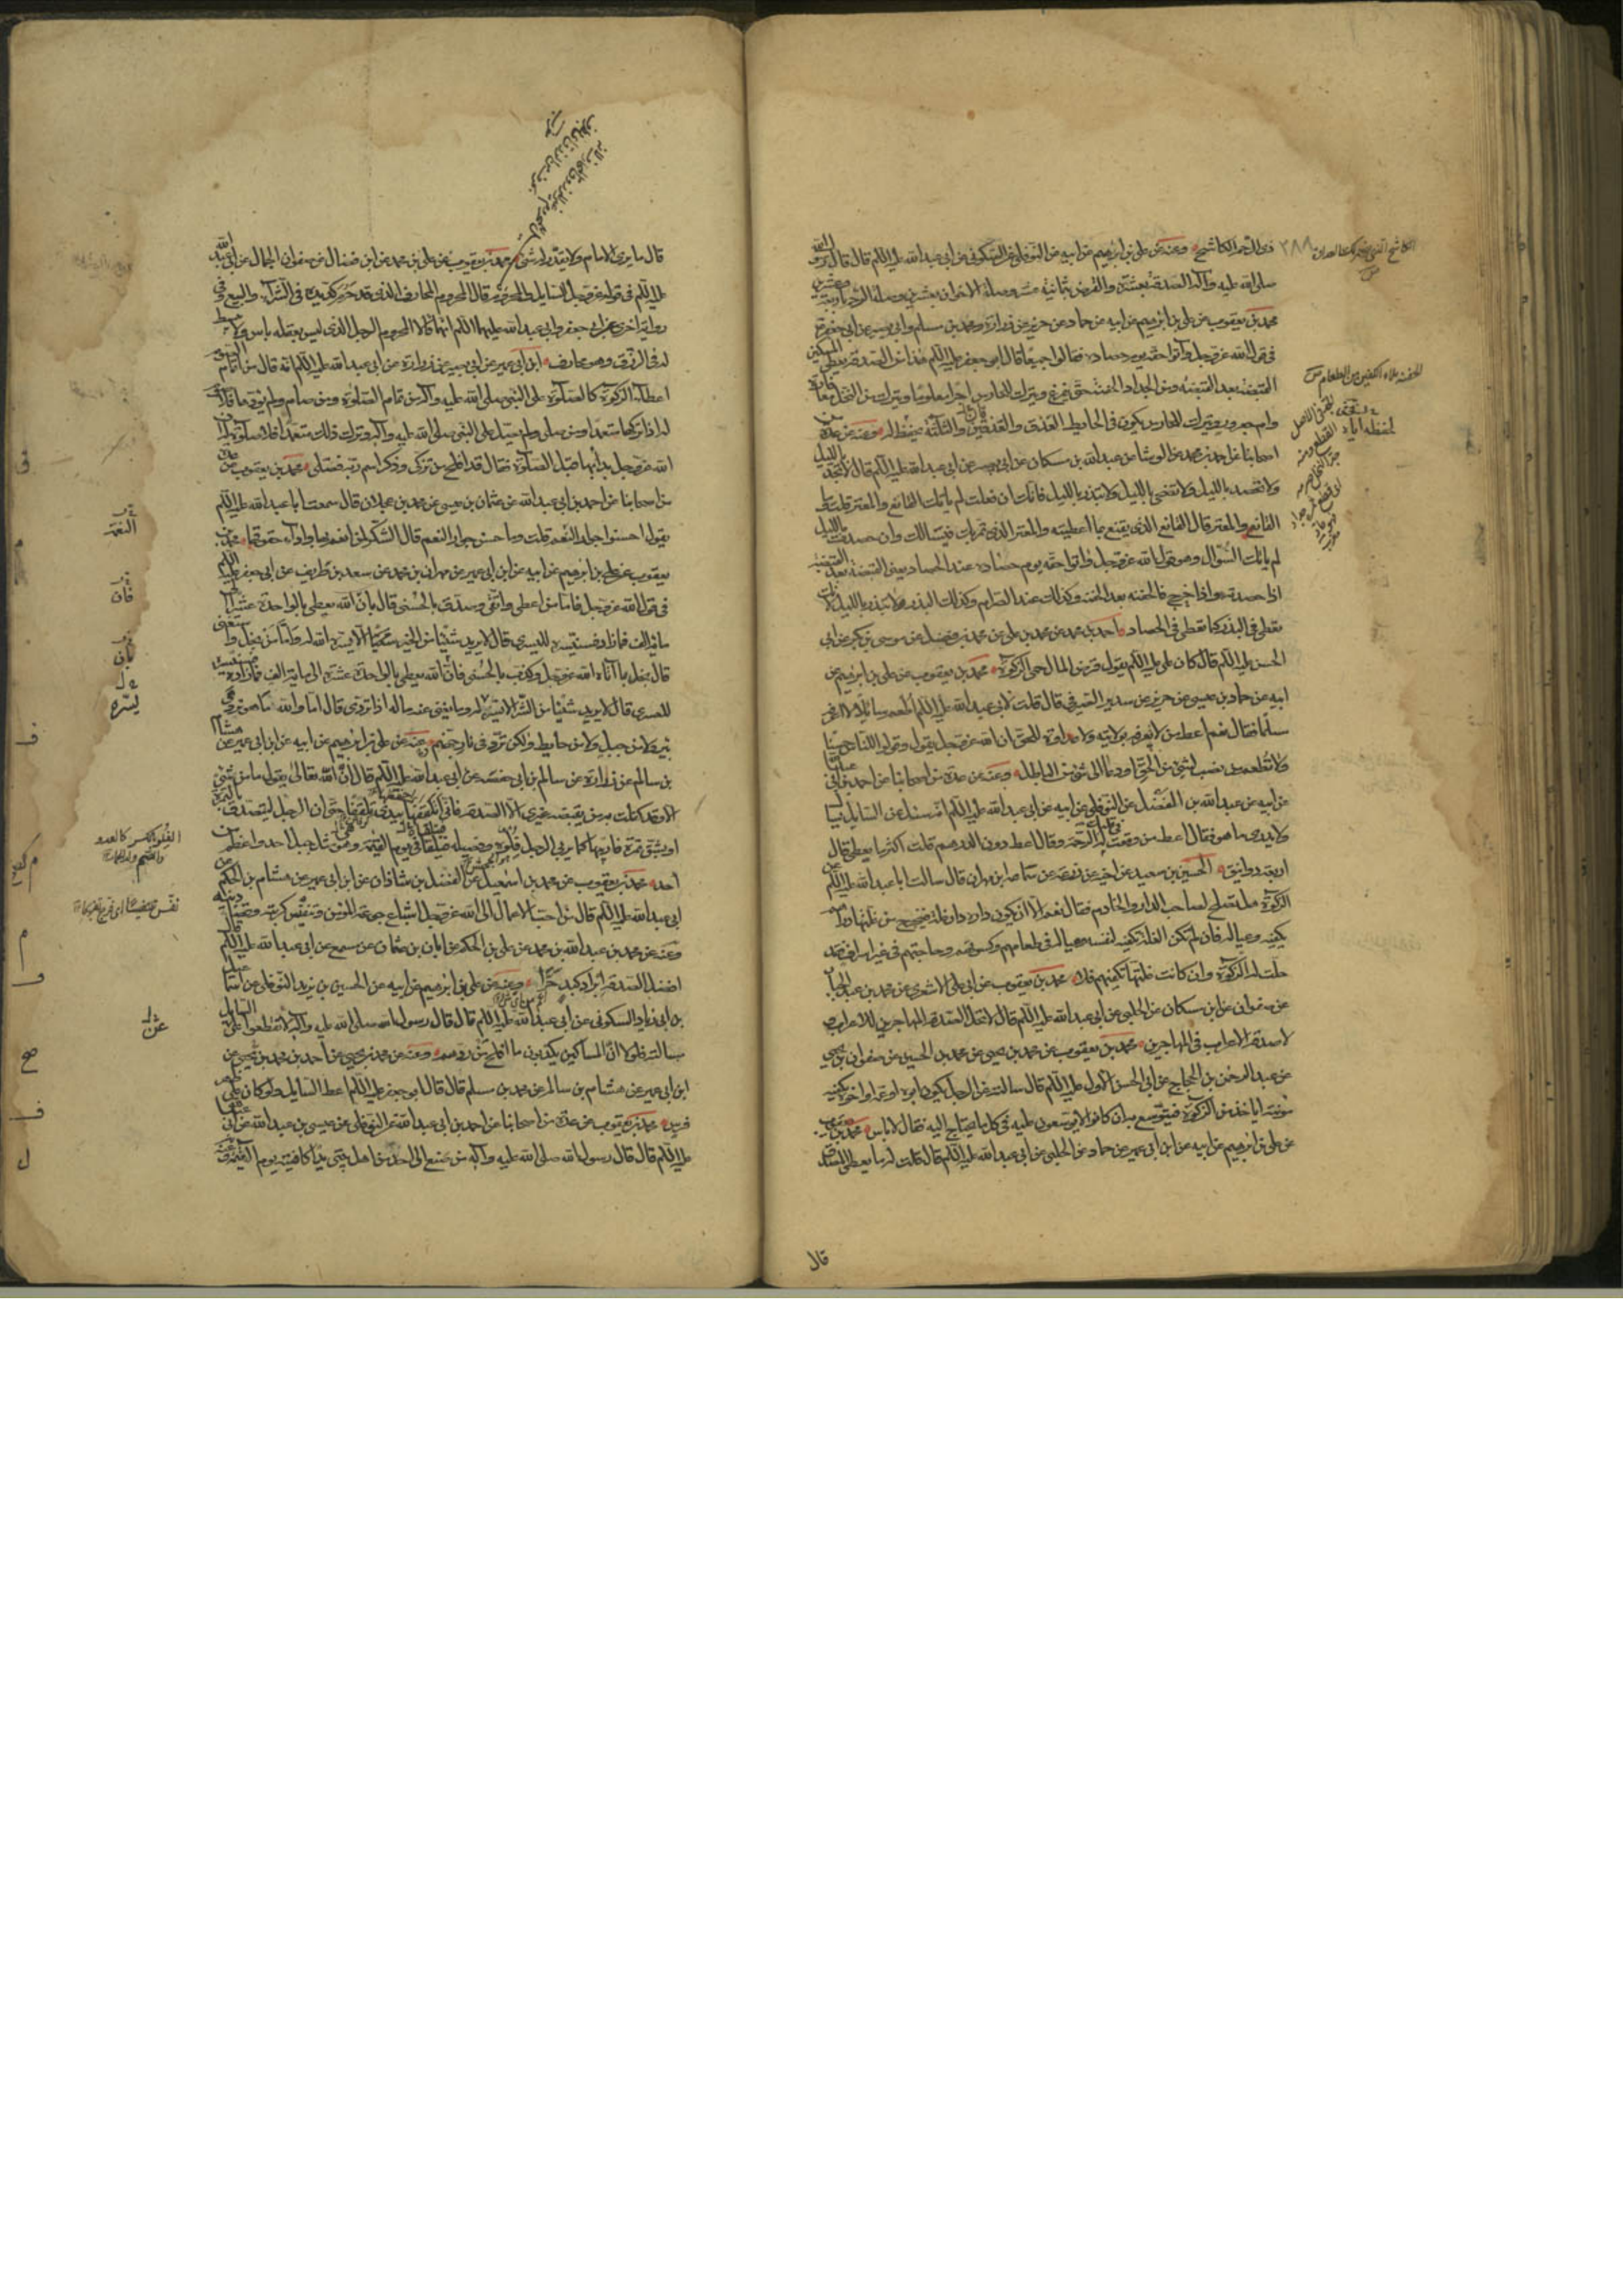 ذى الرحم الكاشح وعنه عن على بن ابرهيم عن ابيه عن النوفلى عن السكونى عن ابى عبد الله عليه السلم قال قال رسول الله
صلى الله عليه وآله الصدقة بعشرة والقرض بثمانية عشر وصلة الاخوان بعشرين وصلة الرحم باربعة وعشرين
محمد بن يعقوب عن على بن ابرهيم عن ابيه عن حماد عن حريز عن زرارة ومحمد بن مسلم وابى بصير عن ابى جعفر ع
فى قول الله عز وجل وآتوا حقه يوم حصاده فقالوا جميعا قال ابو جعفر عليه السلم هذا من الصدقة يعطى المسكين
القبضة بعد القبضة ومن الجداد الحفنة بعد الحفنة حتى يفرغ ويترك للحارس اجرا معلوما ويترك من النخل معافارة
وام جعرور ويترك للحارس يكون فى الحايط العذق والعذقين والثلثة لحفظه له وعنه عن عدة من
اصحابنا عن احمد بن محمد عن الوشا عن عبد الله بن مسكان عن ابى بصير عن ابى عبد الله عليه السلم قال لا تجد بالليل
ولا تحصد بالليل ولا تضحى بالليل ولا تبذر بالليل فانك ان فعلت لم ياتك القانع والمعتر فقلت وما
القانع والمعتر قال القانع الذى يقنع بما اعطيته والمعتر الذى يمر بك فيسالك وان حصدت بالليل
لم ياتك السؤال وهو قول الله عز وجل وآتوا حقه يوم حصاده عند الحصاد يعنى القبضة بعد القبضة
اذا حصدته واذا خرج فالحفنة بعد الحفنة وكذلك عند الصرام وكذلك البذر ولا تبذر بالليل لانك
تعطى فى البذر كما تعطى فى الحصاد احمد بن محمد عن محمد بن على عن محمد بن فضيل عن موسى بن بكر عن ابى
الحسن عليه السلم قال كان على عليه السلم يقول قرض المال حمى الزكوة محمد بن يعقوب عن على بن ابرهيم عن
ابيه عن حماد بن عيسى عن حريز عن سدير الصيرفى قال قلت لابى عبد الله عليه السلم اطعم سائلا لا اعرفه
مسلما فقال نعم اعط من لا تعرفه بولاية ولا عداوة للحق ان الله عز وجل يقول وقولوا للناس حسنا
ولا تطعم من نصب لشئ من الحق او دعا الى شئ من الباطل وعنه عن عدة من اصحابنا عن احمد بن ابى عبد الله
عن ابيه عن عبد الله بن الفضل عن النوفلى عن ابيه عن ابى عبد الله عليه السلم انه سئل عن السايل يسأل
ولا يدرى ما هو فقال اعط من وقعت فى قلبك له الرحمة وقال اعط دون الدرهم قلت اكثر ما يعطى قال
اربعة دوانيق الحسين بن سعيد عن اخيه عن زرعة عن سماعة بن مهران قال سالت ابا عبد الله عليه السلم عن
الزكوة هل تصلح لصاحب الدار والخادم فقال نعم الا ان يكون داره دار غلة فيخرج من غلتها دراهم
يكفيه وعياله فان لم تكن الغلة تكفيه لنفسه وعياله فى طعامهم وكسوتهم وحاجتهم فى غير اسراف فقد
حلت له الزكوة وان كانت غلتها تكفيهم فلا محمد بن يعقوب عن ابى على الاشعرى عن محمد بن عبد الجبار
عن صفوان عن ابن مسكان عن الحلبى عن ابى عبد الله عليه السلم قال لا تحل الصدقة المهاجرين للاعراب و
لا صدقة الاعراب فى المهاجرين محمد بن يعقوب عن محمد بن يحيى عن محمد بن الحسين عن صفوان بن يحيى
عن عبد الرحمن بن الحجاج عن ابى الحسن الاول عليه السلم قال سالته عن الرجل يكون ابوه او عمه او اخوه يكفيه
مؤنته اياخذ من الزكوة فيتوسع به ان كانوا لا يوسعون عليه فى كل ما يحتاج اليه فقال لا باس محمد بن يعقوب
عن على بن ابرهيم عن ابيه عن ابن ابى عمير عن حماد عن الحلبى عن ابى عبد الله عليه السلم قال قلت له ما يعطى المصدق
قال
٢٨٨
الحفنة ملاء الكفين من الطعام ص
قال ما يرى الامام ولا يقدر له شئ محمد بن يعقوب عن على بن محمد عن ابن فضال عن صفوان الجمال عن ابى عبد الله
عليه السلم فى قوله عز وجل للسايل والمحروم قال المحروم المحارف الذى قد حرم كد يده فى الشراء والبيع وفى
رواية اخرى عن ابى جعفر وابى عبد الله عليهما السلم انهما قالا المحروم الرجل الذى ليس بعقله باس ولا يبسط
له فى الرزق وهو محارف ابن ابى عمير عن ابى بصير عن زرارة عن ابى عبد الله عليه السلم انه قال من تمام الصوم
اعطاء الزكوة كالصلوة على النبى صلى الله عليه وآله من تمام الصلوة ومن صام ولم يؤدها فلا صوم
له اذا تركها متعمدا ومن صلى ولم يصل على النبى صلى الله عليه وآله وترك ذلك متعمدا فلا صلوة له ان
الله عز وجل بدأ بها قبل الصلوة فقال قد افلح من تزكى وذكر اسم ربه فصلى محمد بن يعقوب عن عدة
من اصحابنا عن احمد بن ابى عبد الله عن عثمان بن عيسى عن محمد بن عجلان قال سمعت ابا عبد الله عليه السلم
يقول احسنوا جوار النعم قلت وما حسن جوار النعم قال الشكر لمن انعم بها واداء حقوقها محمد بن
يعقوب عن على بن ابرهيم عن ابيه عن ابن ابى عمير عن مهران بن محمد عن سعد بن طريف عن ابى جعفر عليه السلم
فى قول الله عز وجل فاما من اعطى واتقى وصدق بالحسنى قال بان الله يعطى بالواحدة عشرة الى
مائة الف فما زاد فسنيسره لليسرى قال لا يريد شيئا من الخير الا يسره الله له واما من بخل واستغنى
قال بخل بما آتاه الله عز وجل وكذب بالحسنى فان الله يعطى بالواحدة عشرة الى مائة الف فما زاد فسنيسره
للعسرى قال لا يريد شيئا من الشر الا يسر له وما يغنى عنه ماله اذا تردى قال اما والله ما هو تردى فى
بئر ولا من جبل ولا من حايط ولكن تردى فى نار جهنم وعنه عن على بن ابرهيم عن ابيه عن ابن ابى عمير عن هشام
بن سالم عن زرارة عن سالم بن ابى حفصة عن ابى عبد الله عليه السلم قال ان الله تعالى يقول ما من شئ
الا وقد وكلت به من يقبضه غيرى الا الصدقة فانى اتلقفها بيدى تلقفا حتى ان الرجل ليتصدق بالتمرة
او بشق تمرة فاربيها كما يربى الرجل فلوه وفصيله فيلقانى يوم القيمة وهو مثل جبل احد واعظم من
احد محمد بن يعقوب عن محمد بن اسمعيل عن الفضل بن شاذان عن ابن ابى عمير عن هشام بن الحكم عن
ابى عبد الله عليه السلم قال من احب الاعمال الى الله عز وجل اشباع جوعة المؤمن وتنفيس كربته وقضاء دينه
وعنه عن محمد بن عبد الله بن محمد عن على بن الحكم عن ابان بن عثمان عن مسمع عن ابى عبد الله عليه السلم قال
افضل الصدقة ابراد كبد حرى وعنه عن على بن ابرهيم عن ابيه عن الحسين بن يزيد النوفلى عن اسمعيل
بن ابى زياد السكونى عن ابى عبد الله عليه السلم قال قال رسول الله صلى الله عليه وآله لا تقطعوا على السايل
مسالته فلولا ان المساكين يكذبون ما افلح من ردهم وعنه عن محمد بن يحيى عن احمد بن محمد بن يحيى عن
ابن ابى عمير عن هشام بن سالم عن محمد بن مسلم قال قال ابو جعفر عليه السلم اعط السايل ولو كان على ظهر
فرس محمد بن يعقوب عن عدة من اصحابنا عن احمد بن ابى عبد الله عن النوفلى عن عيسى بن عبد الله عن ابى عبد الله
عليه السلم قال قال رسول الله صلى الله عليه وآله من صنع الى احد من اهل بيتى يدا كافيته يوم القيمة
فان
بان
يسره
الفلو بالكسر كالعدو